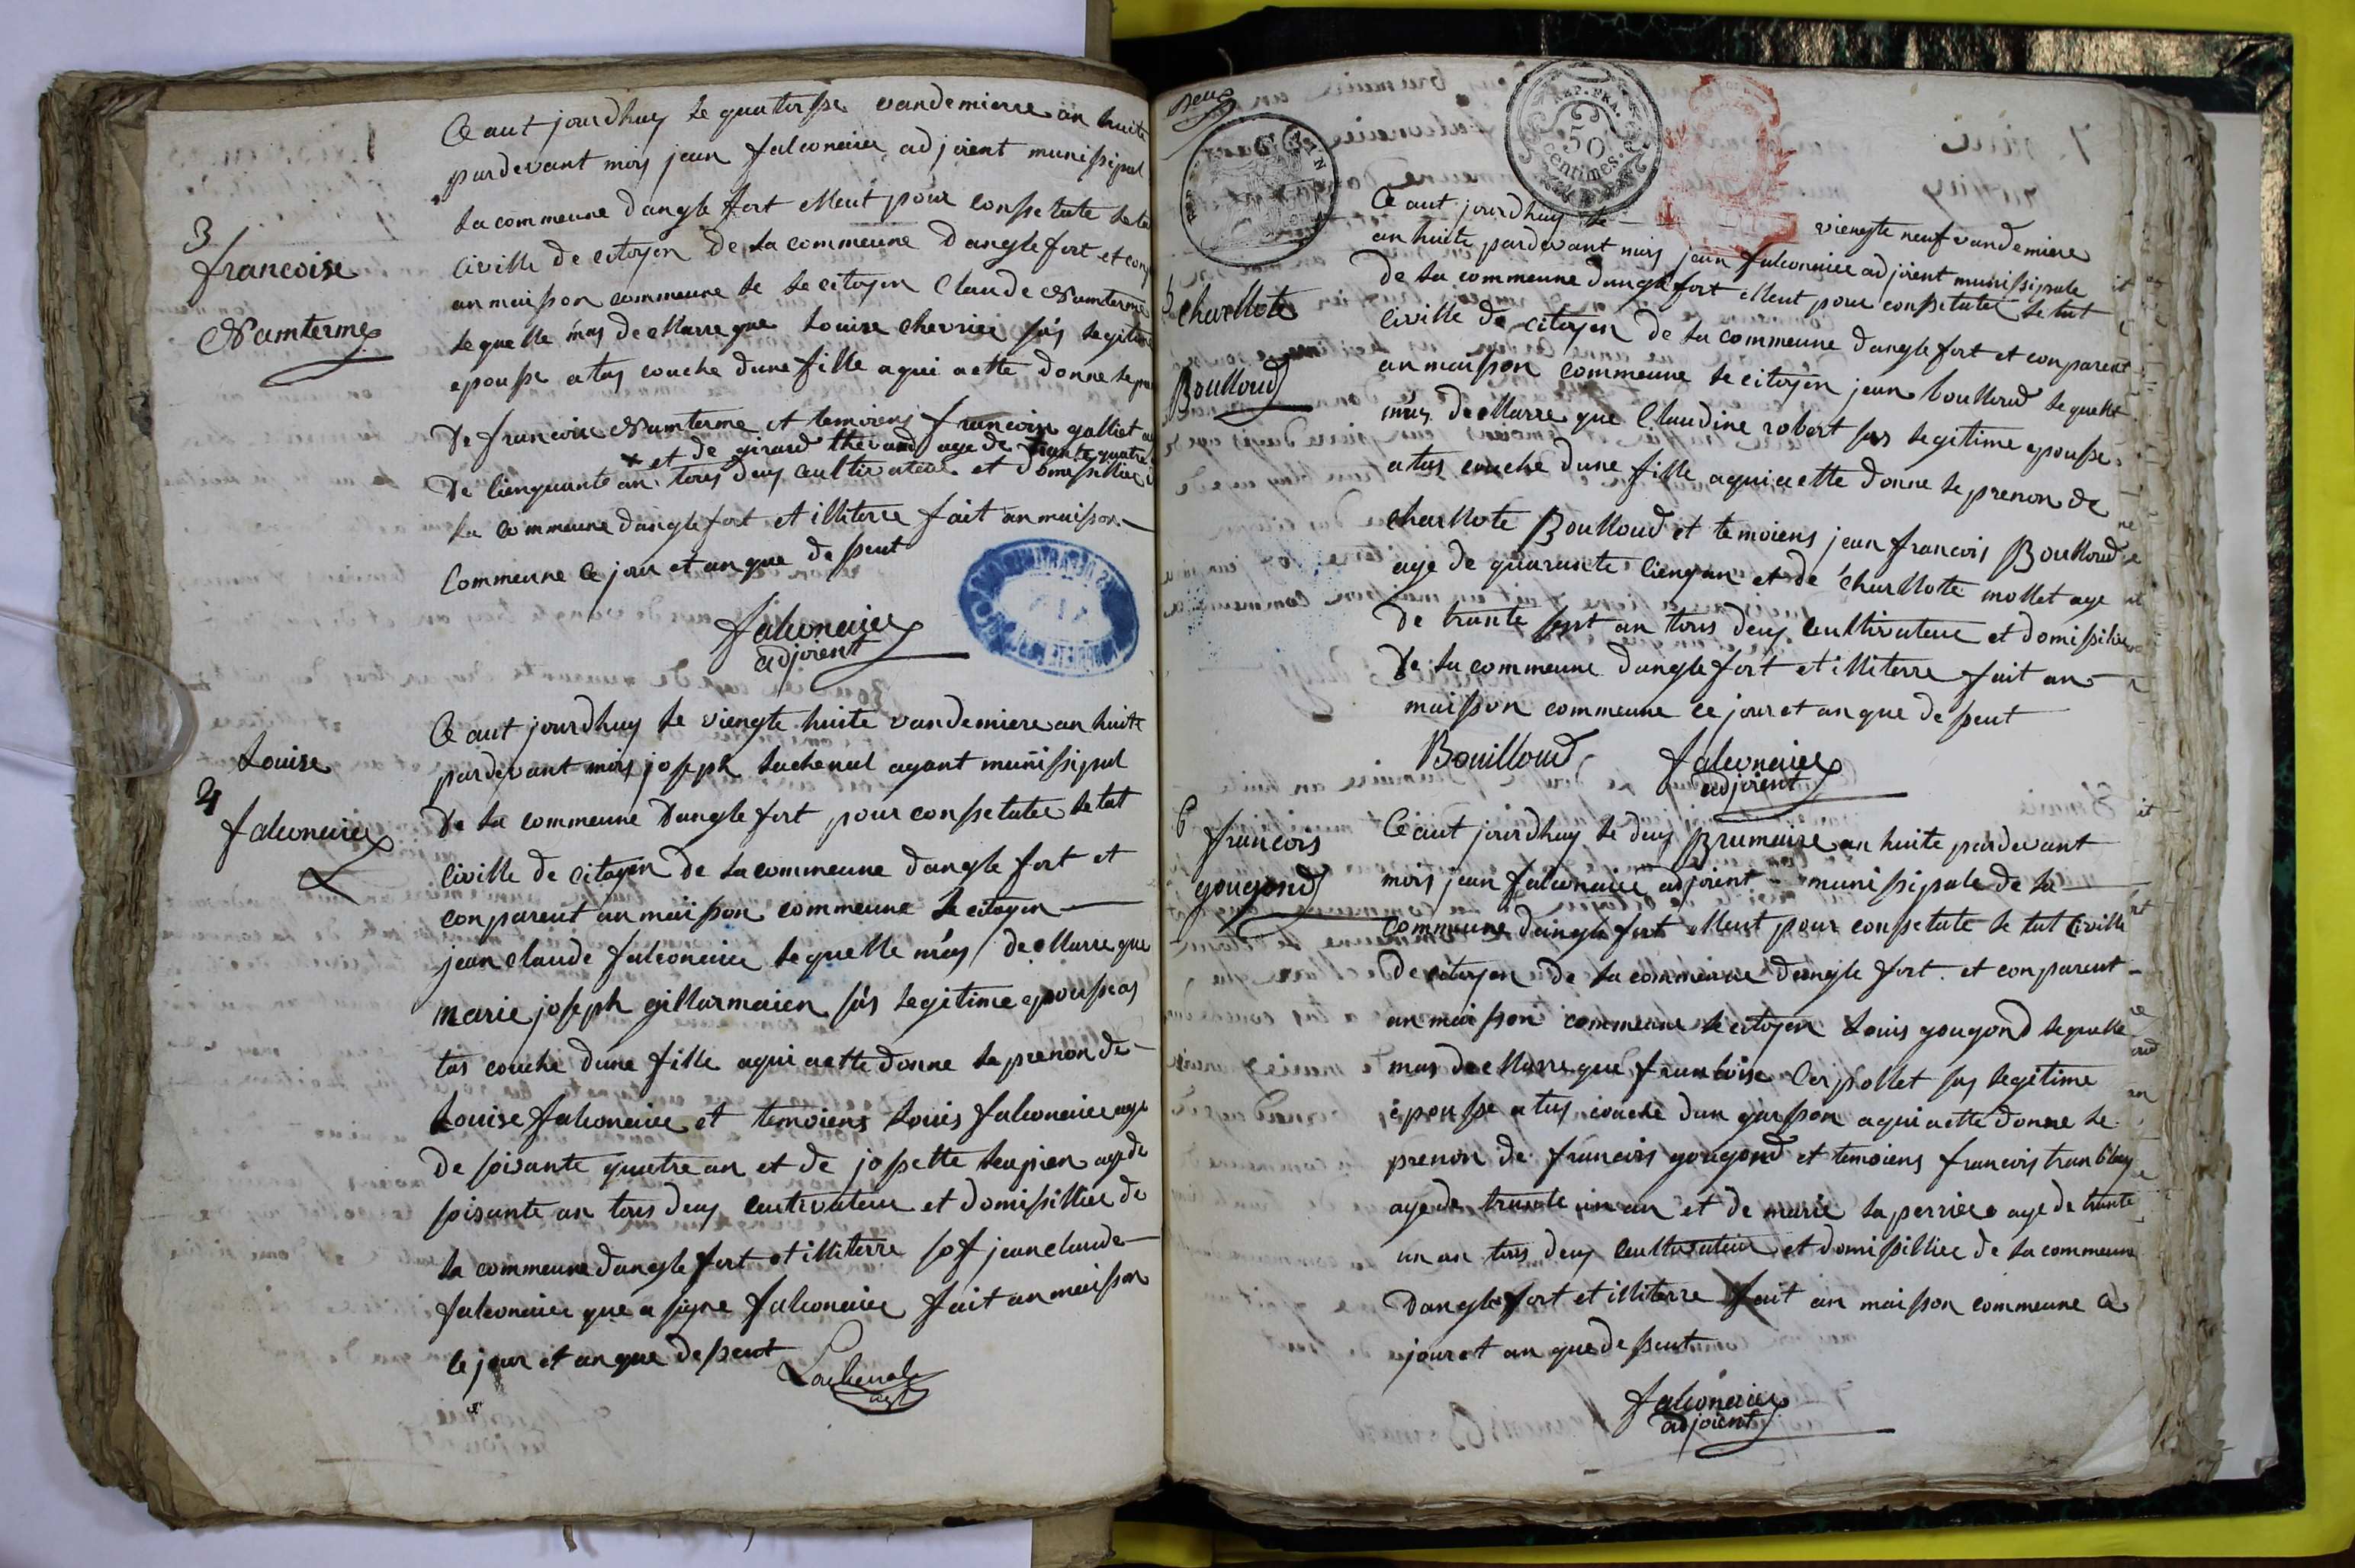 3
francoise
Namterme
Ce aut jourdhuy le quatorsse vandemierre an huite
pardevant mois jean falconnier adjoient munissipal
la commeune dangle fort elleut pour conssetate le ta
civille de citoyen de la commeune dangle fort et conp
an maisson commeune le le citoyen Claude Namterme
lequelle mas decllarre que Louise chevrier sas legitime
epousse atas couche dune fille aqui aette donne le pre
De francoise Namterme et temoiens francois galliet a
x et de girard thevand age de trante quatre
De cienquante an tous deus cultivateur et domissillier d
la commeune dangle fort et illiterre fait an maisson
Commeune ce jour et an que dessent
falconnier
adjoient
4
Louise
falconnier
Ce aut jourdhuy le viengte huite vandemiere an huite
pardevant mois joseph lachenal agant munissipal
De la commeune Dangle fort pour conssetater le tat
civille de citoyen de la commeune dangle fort et
conparent an maisson commeune le citoyen
jean claude falconnier lequelle mas decllarre que
marie joseph gillarmaien sas legitime epousse as
tas couche dune fille aqui aette donne le prenon de
Louise falconnier et temoiens Louis falconnier age
de soisante quatre an et de jossette age de
soisante an tous deus cultivateur et domissillier de
la commeune dangle fort et illiterre sof jean claude
falconnier que a signe falconnier fait an maisson
le jour et an que dessent
Lachenal
agt
Deux
REP. FRA.
50
centimes.
5
charllote
Boulloud
Ce aut jourdhuy le viengte neuf vandemiere
an huite pardevant mois jean falconnier adjoient munissipale
de la commeune dangle fort elleut pour conssetater le tat
civille de citoyen de la commeune dangle fort et conparent
an maisson commeune le citoyen jean boulloud lequelle
mas decllarre que Claudine robert sas legitime epousse
atas couche dune fille aqui aette donne le prenon de
charllote Boulloud et temoiens jean francois Boulloud
age de quarante cienq an et de charllote mollet age
De trante sept an tous deus cultivateur et domissilier
De la commeune dangle fort et illiterre fait an
maisson commeune ce jour et an que dessent
Bouilloud falconnier
adjoient
6
francois
gougond
Ce aut jourdhuy le deus Brumaire an huite pardevant
mois jean falconnier adjoient munissipale de la
commeune dangle fort elleut pour conssetate le tat civille
De citoyen de la commeune dangle fort et conparent
an maisson commeune le citoyen Louis gougond lequelle
mas decllarre que francoise Cerpollet sas legitime
epousse atas couche dun garsson aqui aette donne le
prenon de francois gougond et temoiens francois tranblay
age de trante un an et de marie la perriere age de trante
un an tous deus cultivateur et domissillier de la commeune
Dangle fort et illiterre fait an maisson commeune ce
jour et an que dessent
falconnier
adjoient